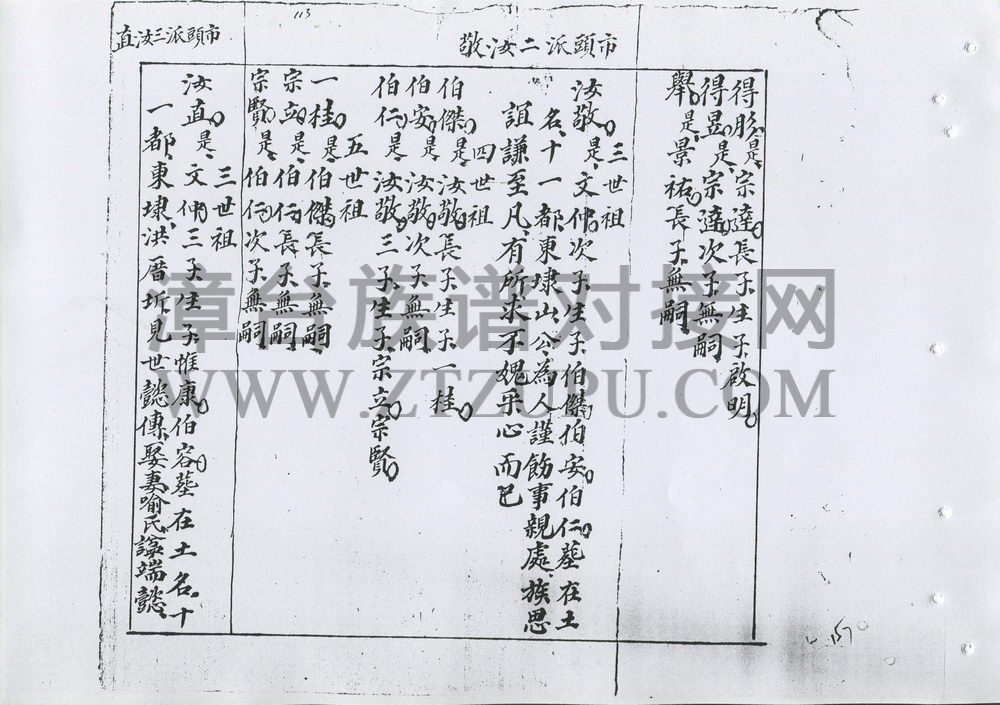 113
市頭派二汝敬
市頭派三汝直
得肜是宗達長子生子啟明
得昱是宗達次子無嗣
舉是景祐長子無嗣
三世祖
汝敬是文仲次子生子伯傑伯安伯仁墓在土
名十一都東埭山公為人謹飭事親處族思
誼謙至凡有所求不媿乎心而已
四世祖
伯傑是汝敬長子生子一桂
伯安是汝敬次子無嗣
伯仁是汝敬三子生子宗立宗賢
五世祖
一桂是伯傑長子無嗣
宗立是伯仁長子無嗣
宗賢是伯仁次子無嗣
三世祖
汝直是文仲三子生子惟康伯容墓在土名十
一都東埭洪厝坵見世懿傳娶妻喻氏諡端懿
157
漳台族谱对接网
WWW.ZTZUPU.COM